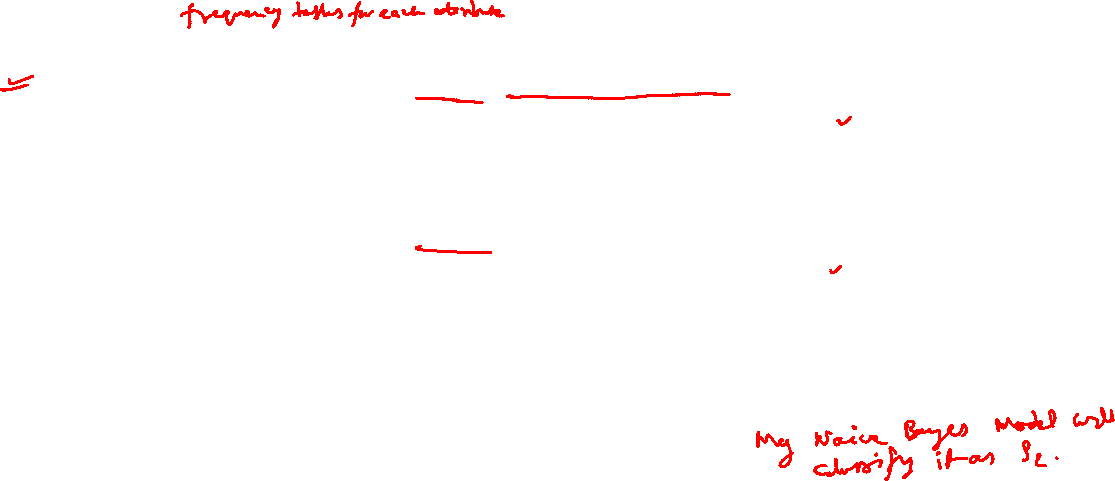 frequency tables for each attribute
My Naive Bayes Model will
classify it as